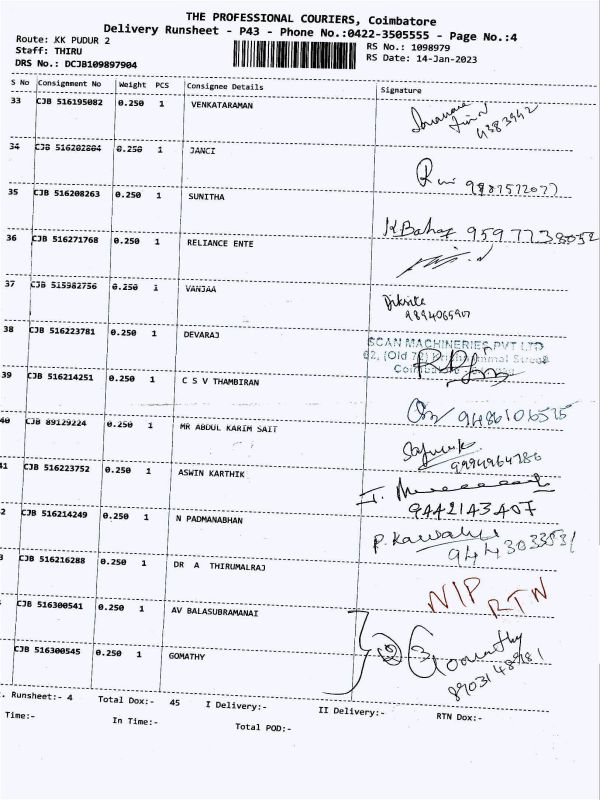 THE PROFESSIONAL COURIERS, Coimbatore
Delivery Runsheet - P43 - Phone No.:0422-3505555 - Page No.:4
Route: KK PUDUR 2
RS No.: 1098979
Staff: THIRU
RS Date: 14-Jan-2023
DRS No.: DCJB109897904
S No Consignment No Weight PCS Consignee Details Signature
33 CJB 516195082 0.250 1 VENKATARAMAN
4383942
34 CJB 516202804 0.250 1 JANCI
35 CJB 516208263 0.250 1 SUNITHA
K Bahar 9597738052
36 CJB 516271768 0.250 1 RELIANCE ENTE
37 CJB 515982756 0.250 1 VANJAA
9894065907
38 CJB 516223781 0.250 1 DEVARAJ
SCAN MACHINERIES PVT LTD
62, (Old 72) Street
39 CJB 516214251 0.250 1 C S V THAMBIRAN
9486106515
40 CJB 89129224 0.250 1 MR ABDUL KARIM SAIT
9994964786
41 CJB 516223752 0.250 1 ASWIN KARTHIK
9442143407
2 CJB 516214249 0.250 1 N PADMANABHAN
P. Kawalya
9443033531
3 CJB 516216288 0.250 1 DR A THIRUMALRAJ
NIP RTN
CJB 516300541 0.250 1 AV BALASUBRAMANAI
CJB 516300545 0.250 1 GOMATHY
② Gomathy
8903148981
. Runsheet:- 4 Total Dox:- 45 I Delivery:- II Delivery:- RTN Dox:-
Time:- In Time:- Total POD:-